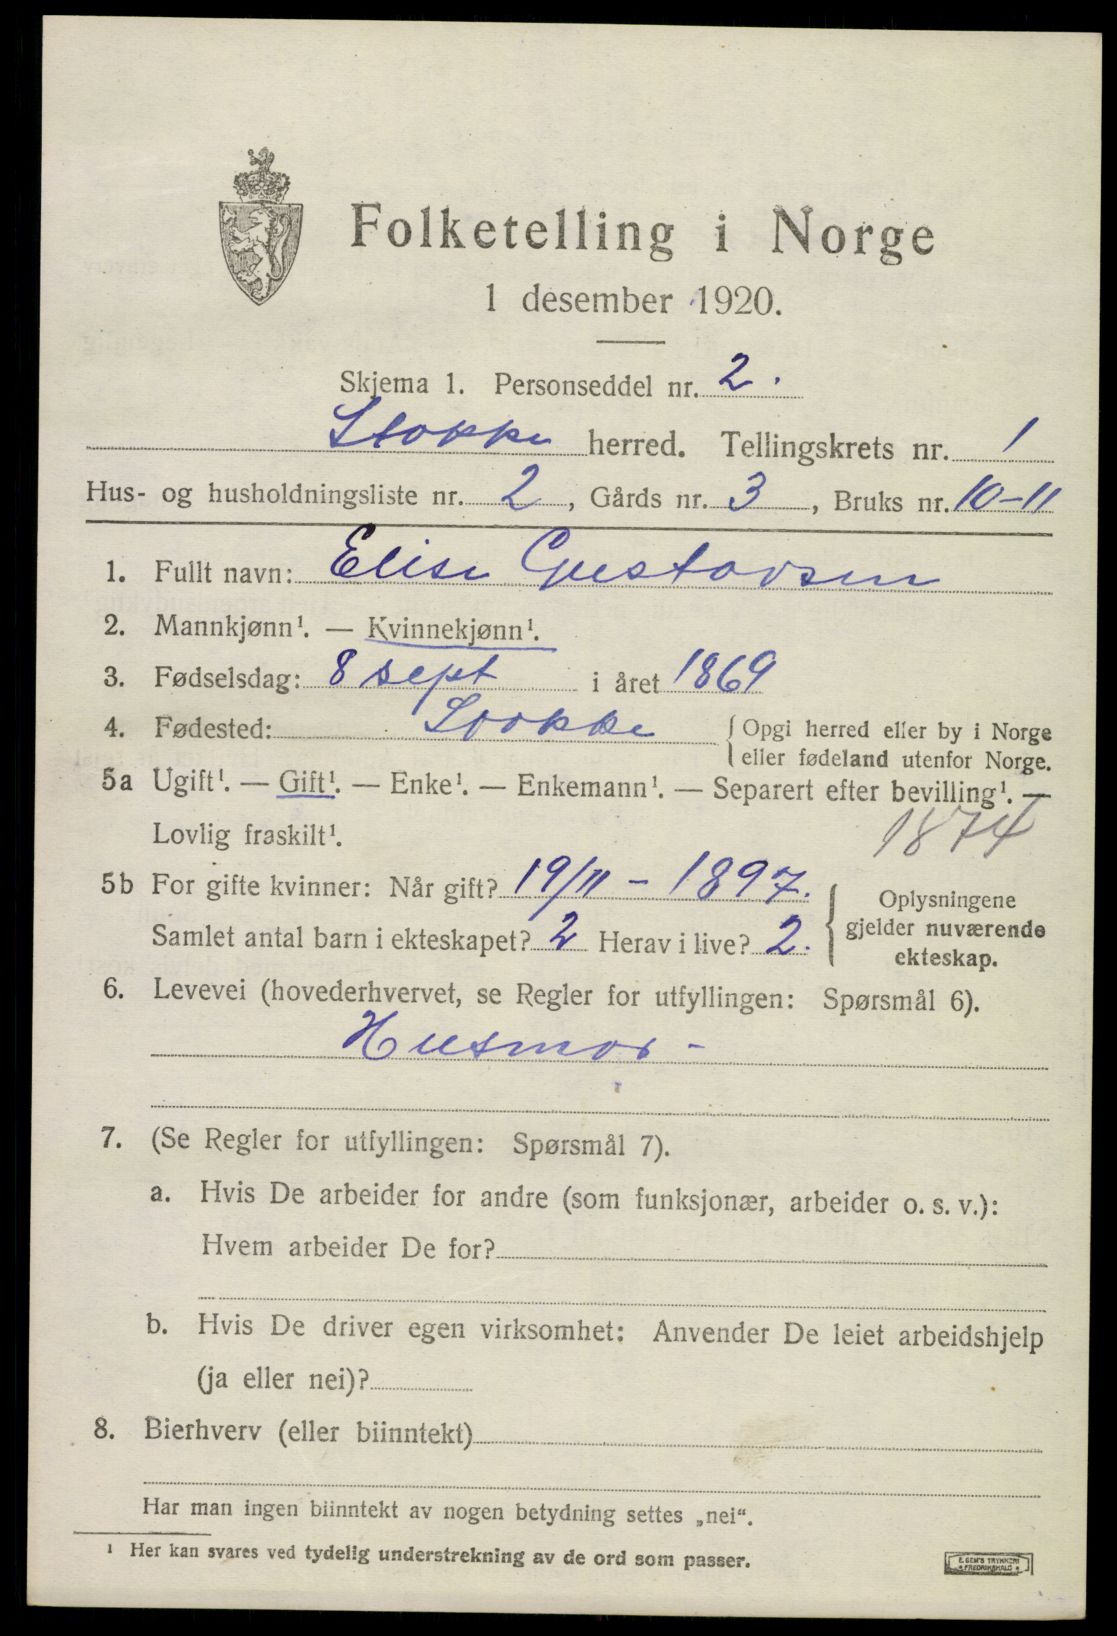 Folketelling i Norge
1 desember 1920.
Skjema 1. Personseddel nr. 2.
Stokke herred. Tellingskrets nr. 1
Hus- og husholdningsliste nr. 2, Gårds nr. 3, Bruks nr. 10-11
1. Fullt navn: Elise Gustavsen
2. Mannkjønn¹. — Kvinnekjønn¹.
3. Fødselsdag: 8 sept i året 1869
4. Fødested: Stokke { Opgi herred eller by i Norge
eller fødeland utenfor Norge.
5a Ugift¹. — Gift¹. — Enke¹. — Enkemann¹. — Separert efter bevilling¹. —
Lovlig fraskilt¹. 1874
5b For gifte kvinner: Når gift? 19/11 - 1897.
Samlet antal barn i ekteskapet? 2 Herav i live? 2.
{ Oplysningene
gjelder nuværende
ekteskap.
6. Levevei (hovederhvervet, se Regler for utfyllingen: Spørsmål 6).
Husmor -
7. (Se Regler for utfyllingen: Spørsmål 7).
a. Hvis De arbeider for andre (som funksjonær, arbeider o. s. v.):
Hvem arbeider De for?
b. Hvis De driver egen virksomhet: Anvender De leiet arbeidshjelp
(ja eller nei)?
8. Bierhverv (eller biinntekt)
Har man ingen biinntekt av nogen betydning settes „nei“.
¹ Her kan svares ved tydelig understrekning av de ord som passer.
E. SEM'S TRYKKERI
FREDRIKSHALD